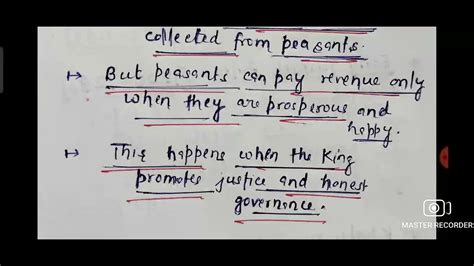 collected from peasants.
↦ But peasants can pay revenue only
when they are prosperous and
happy.
↦ This happens when the King
promotes justice and honest
governance.
MASTER RECORDER